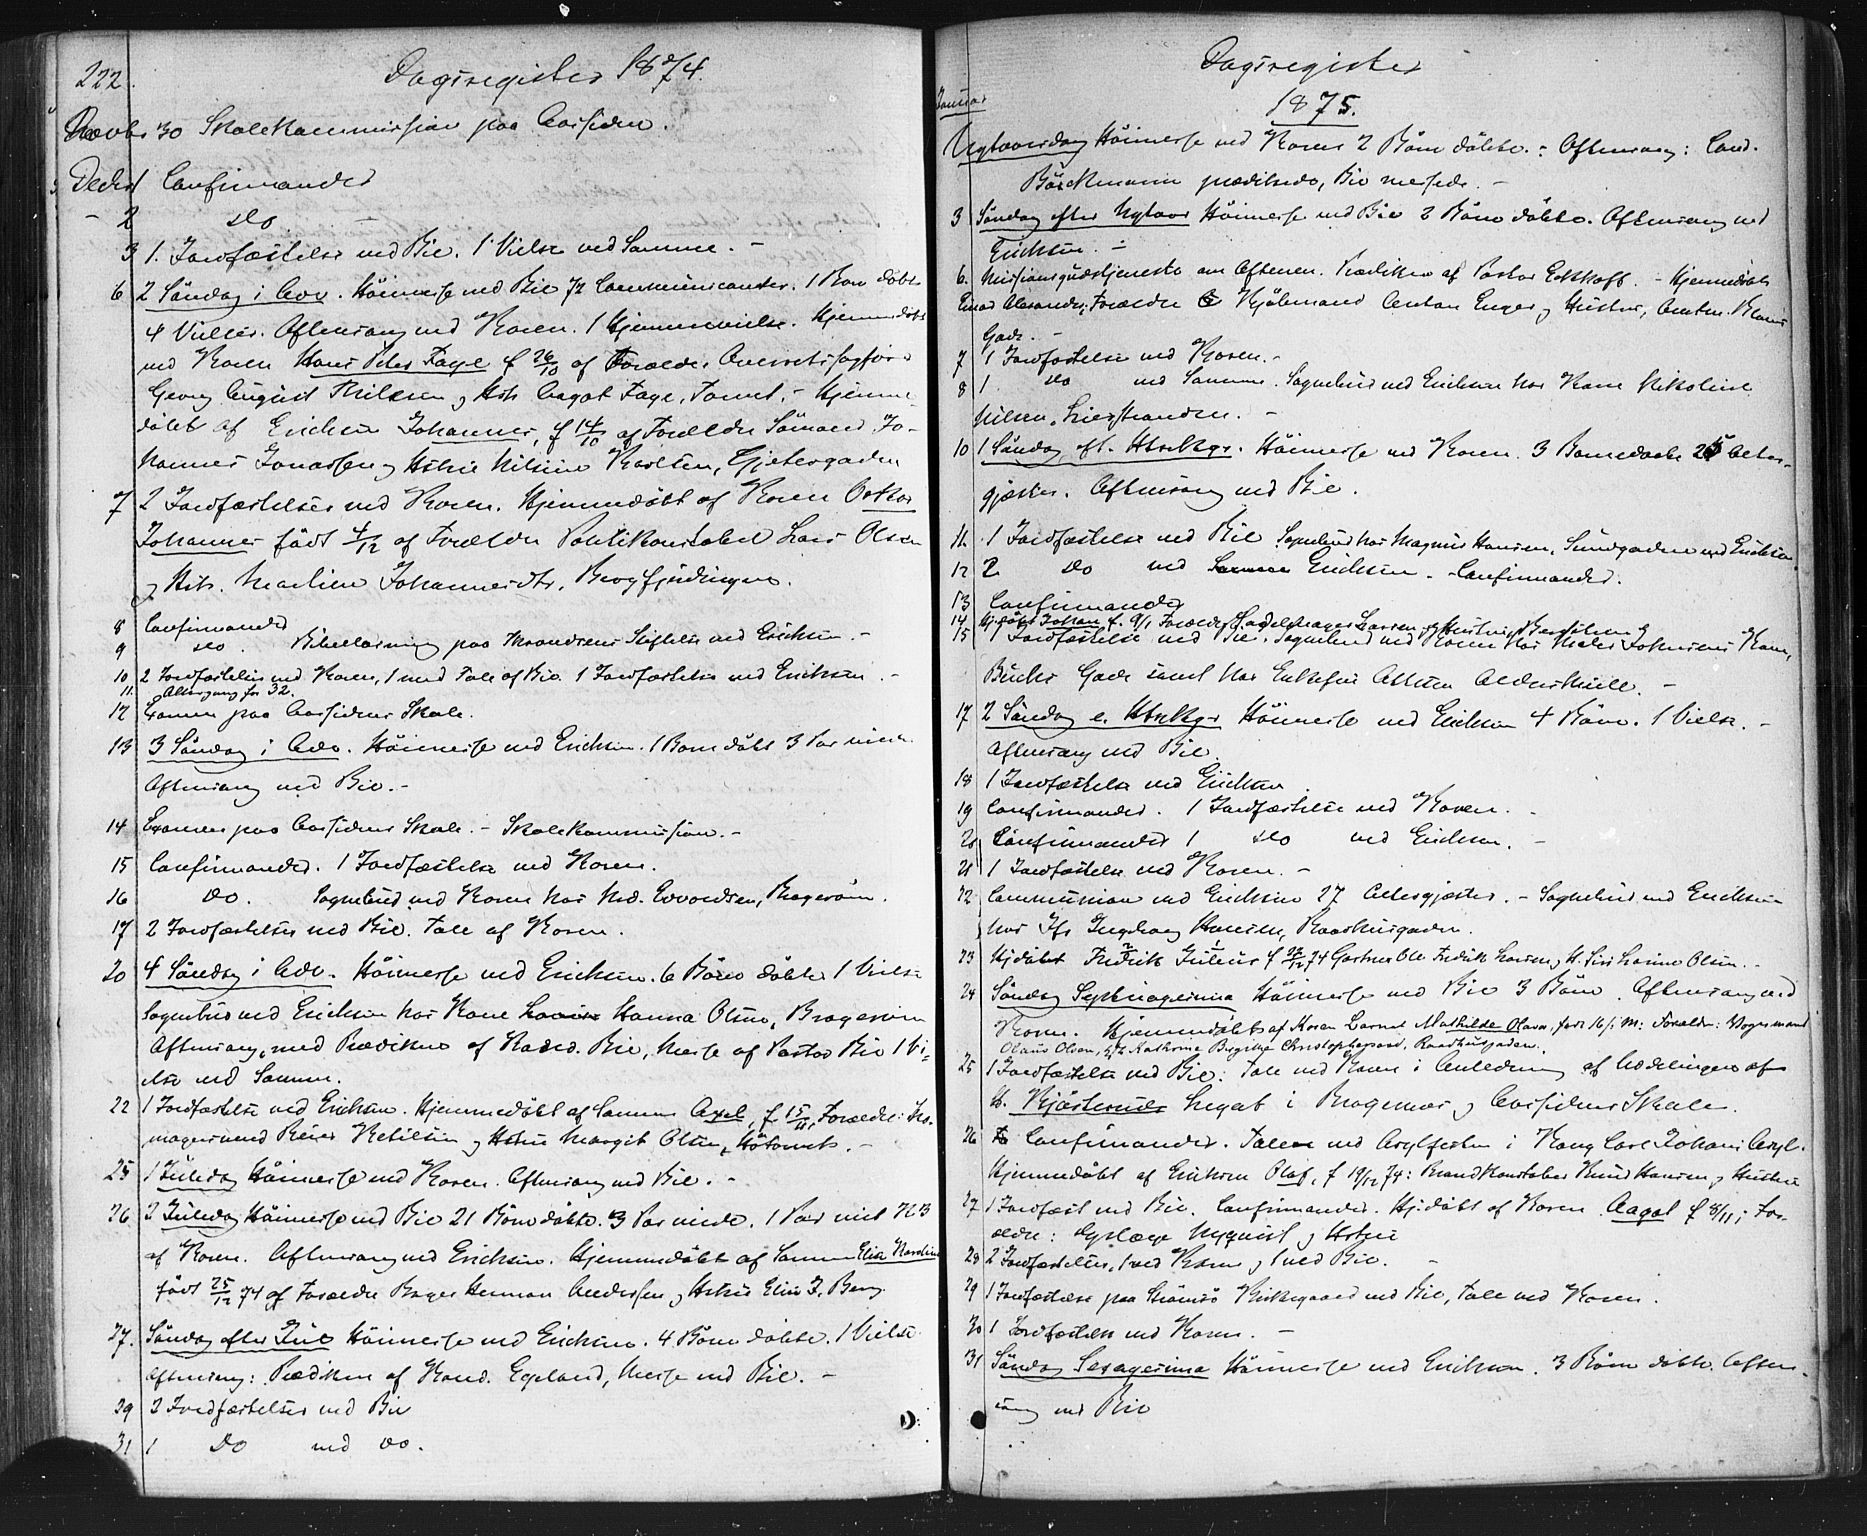 222.
Dagsregister 1874.
Novbr 30 Skolekommission paa Aassiden.
Decbr 1 Confirmander
- 2 do -
3 1. Jordfæstelse ved Bie. 1 Vielse ved Samme. -
6 2 Søndag i Adv. Höimesse ved Bie 72 Communicanter. 1 Barn döbt
4 Vielser. Aftensang ved Koren. 1 Hjemmevielse. Hjemmedöbt
ved Koren Hans Peter Faye f 26/10 af Forældre Overretssagfører
Georg August Thilesen og Hst. Aagot Faye, Tornet. - Hjemme-
döbt af Erichsen Johannes, f 14/10 af Forældre Sömand Jo-
hannes Jonassen og Hstru Nilsine Karlsen, Gjetergaden
7 2 Jordfæstelser ved Koren. Hjemmedöbt af Koren Oskar
Johannes födt 4/12 af Forældre Politikonstabel Lars Olsen
og Hst. Martine Johannesdtr,
8 Confirmander
9 do. Bibellæsning paa Stiftelse ved Erichsen. -
10 2 Jordfæstelser ved Koren, 1 med Tale af Bie. 1 Jordfæstelse ved Erichsen. -
11. Altergang for 32.
12 Examen paa Aassidens Skole.
13 3 Søndag i Adv. Höimesse ved Erichsen. 1 Barn döbt 3 Par viede.
Aftensang ved Bie. -
14 Examen paa Aassidens Skole. - Skolekommission. -
15 Confirmander. 1 Jordfæstelse ved Koren.
16 Do. Sognebud ved Koren hos Md. Evvordsen, Bragerøen.
17 2 Jordfæstelser ved Bie. Tale af Koren.
20 4 Söndag i Adv. Höimesse ved Erichsen. 6 Börn döbte 1 Vielse
Sognebud ved Erichsen hos Kone Hanna Olsen, Brageröen
Aftensang med Prædiken af Kand. Bie, Messe af Pastor Bie 1 Vi-
else ved Samme.
22 1 Jordfæstelse ved Erichsen. Hjemmedöbt af Samme Axel, f 15/11, Forældre: Sko-
magersvend Peter Ketilsen og Hstru Margit Olsen, .-
25 1 Juledag Höimesse ved Koren. Aftensang ved Bie. -
26 2 Juledag Höimesse ved Bie 21 Börn döbte. 3 Par viede. 1 Par viet
af Koren. Aftensang ved Erichsen. Hjemmedöbt af Samme Elise
födt 25/12 74 af Forældre Bager Herman Andersen og Hstru Elise J. Berg.
27. Søndag efter Jul Höimesse ved Erichsen. 4 Börn döbte. 1 Vielse
Aftensang: Prædiken af Kand. Egeland, Messe ved Bie. -
29 2 Jordfæstelser ved Bie
31 1 Do ved do.
Dagsregister
1875.
Januar
Nytaarsdag Höimesse ved Koren 2 Börn döbte. - Aftensang: Cand.
prædikede, Bie messede. -
3 Søndag efter Nytaar Höimesse ved Bie 2 Börn döbte. Aftensang ved
Erichsen. -
6. Missionsgudstjeneste om Aftenen. Prædiken af Pastor Eckhoff. - Hjemmedöbt
Einar Alexander, Forældre Kjöbmand Anton Enger og Hustru,
Gade.
7 1 Jordfæstelse ved Koren. -
8 1 do ved Samme. Sognebud ved Erichsen hos Kone Nikoline
Nilsen, Lierstranden. -
10 1 Søndag eft. Htrekgr. Höimesse ved Koren. 3 Barnedaab 25 Alter-
gjæster. Aftensang ved Bie.
11. 1 Jordfæstelse ved Bie Sognebud hos Magnus Hansen, Sundgaden ved Erichsen
12 2 do ved Erichsen. Confirmander.
13 Confirmander
14 Hjdöbt Johan f. 9/1 Forældre Larsen og Hustru
15 1 Jordfæstelse ved Bie. Sognebud ved Koren hos Johnsens Kone,
Gade samt hos Enkefru
17 2 Söndag e. Htrekgr Höimesse ved Erichsen 4 Börn. 1 Vielse. -
Aftensang ved Bie
18 1 Jordfæstelse ved Erichsen
19 Confirmander. 1 Jordfæstelse ved Koren. -
20 Confirmander 1 do ved Erichsen. -
21 1 Jordfæstelse ved Koren. -
22 Communion ved Erichsen 27 Altergjæster. - Sognebud ved Erichsen
hos Jfr Ingeborg Hansen, Raadhusgaden.
23 Hjdöbt Fredrik Julius f 22/12 74 Gartner Ole Fredrik Larsen og H. Siri Larine Olsen. -
24 Søndag Septuagesima Höimesse ved Bie 3 Börn. Aftensang ved
Koren. Hjemmedöbt af Koren Barnet Mathilde Olava, födt 16/ M: Forældre: Vognmand
Olaus Olsen, og Kathrine Birgithe Christophersen, Raadhusgaden.
25 1 Jordfæstelse ved Bie: Tale ved Koren i Anledning af Uddelingen af
Kjösteruds Legat i Bragernes og Aassidens Skole.
26 Confirmander. Tale ved Asylfesten i Kong Carl Johans Asyl.
Hjemmedöbt af Erichsen Olaf, f 19/12 74: Brandkonstabel Knud Hansen og Hustru
27 1 Jordfæst ved Bie. Confirmander. Hjdöbt af Koren Aagot f 8/11; For-
ældre: Dyrlæge Nyquist og Hstru
28 2 Jordfæstelser, 1 ved Koren og 1 ved Bie. -
29 1 Jordfæstelse paa Strömsö Kirkegaard ved Bie, Tale ved Koren.
30 1 Jordfæstelse ved Koren. -
31 Søndag Sexagesima Höimesse ved Erichsen. 3 Börn döbte. Aften-
sang ved Bie